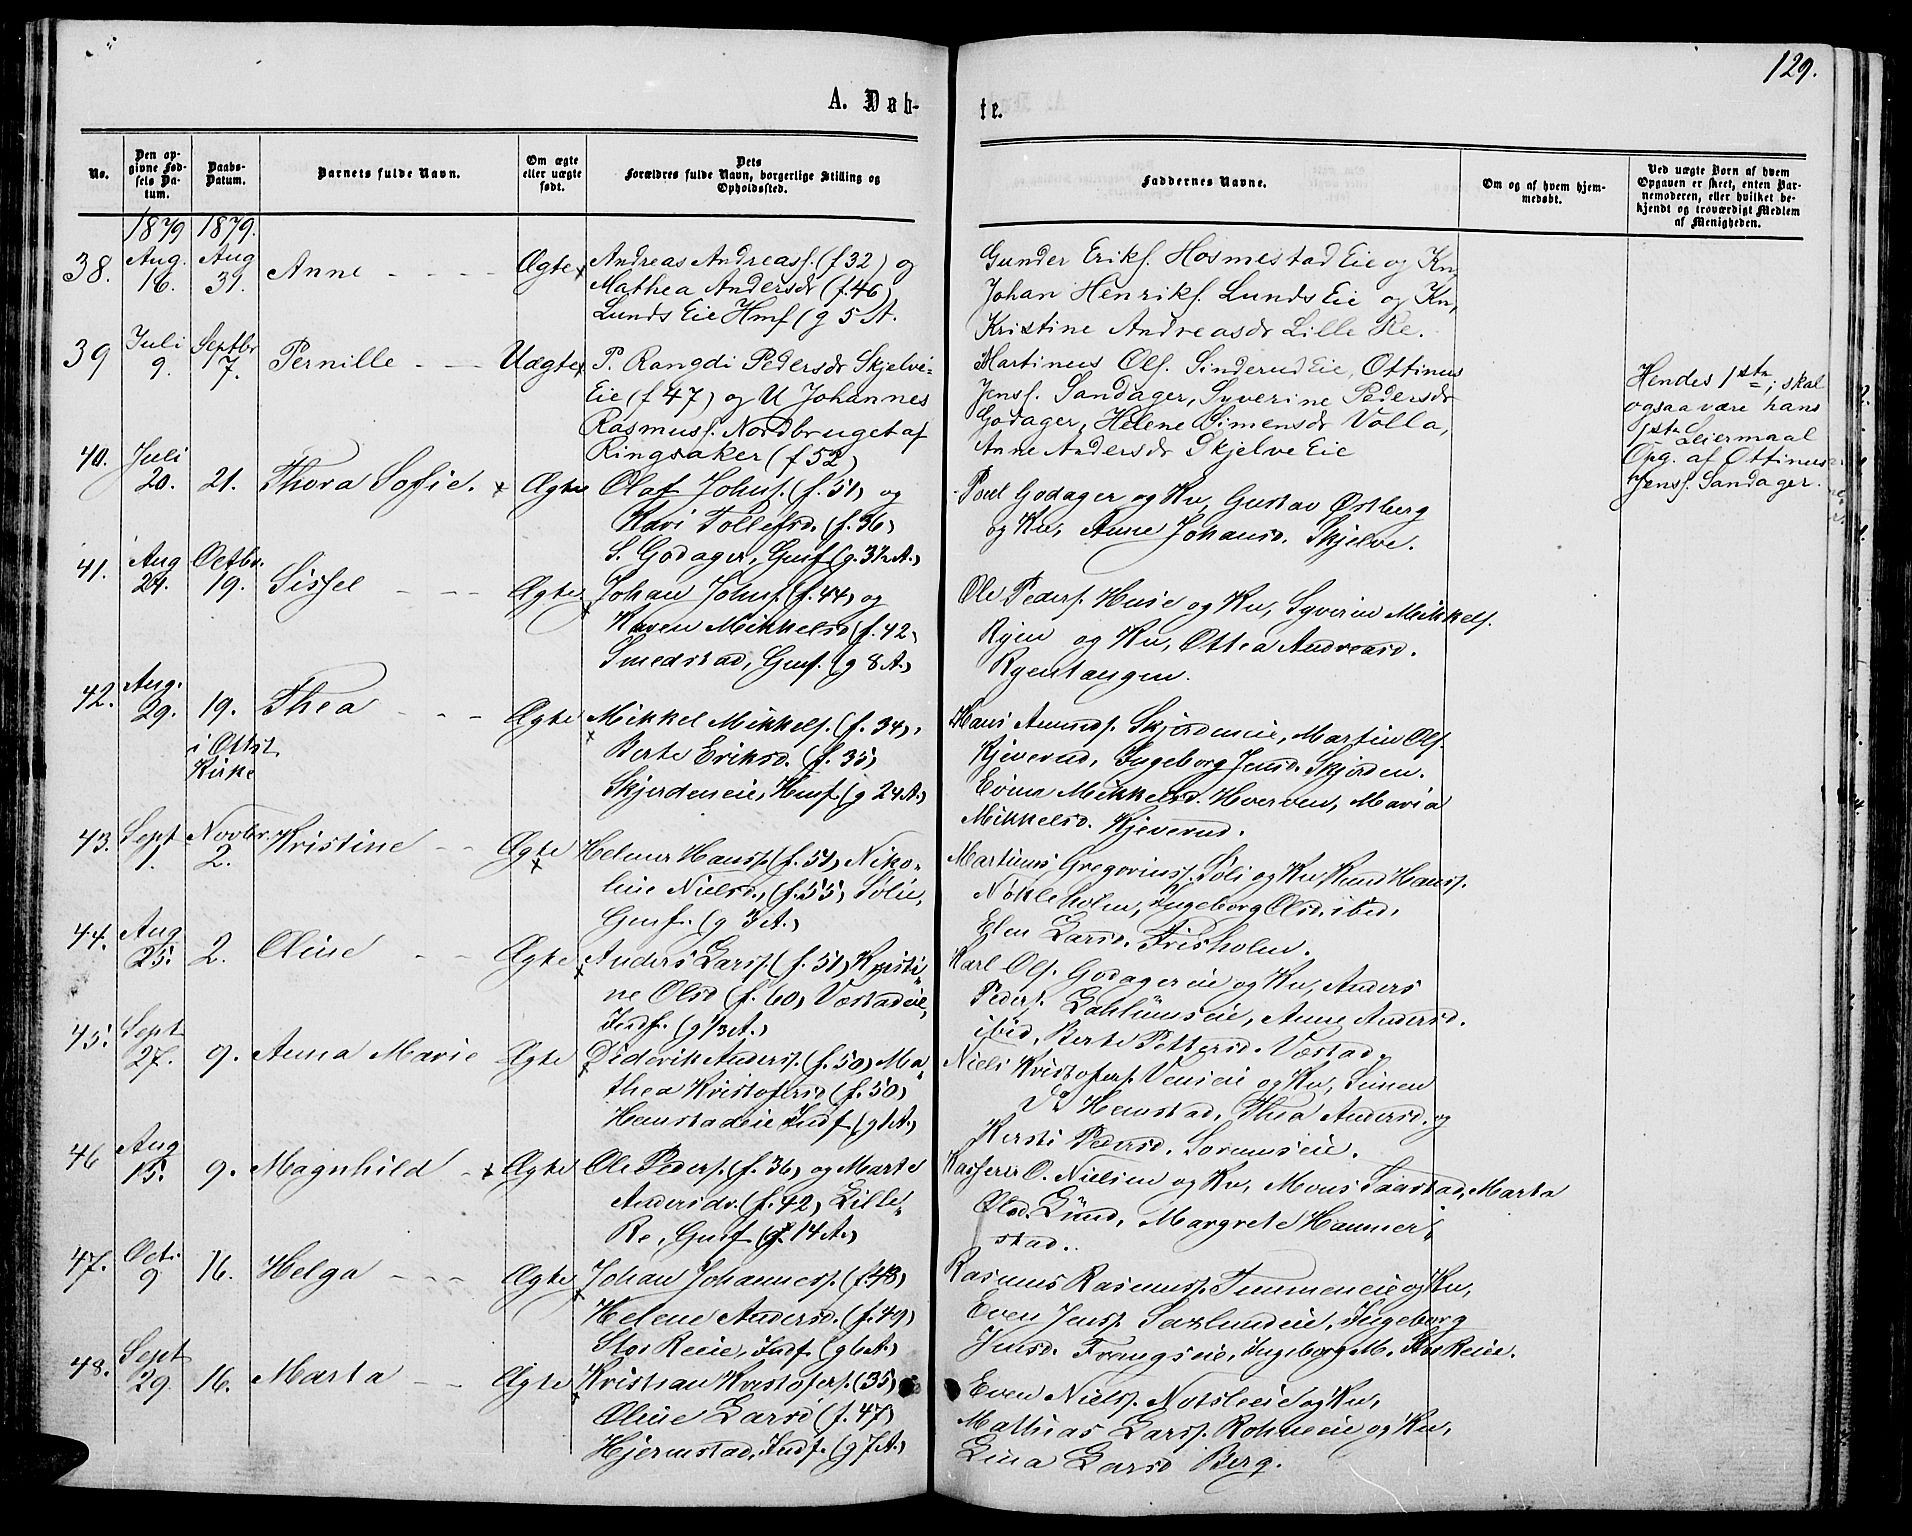 129.
A. Døb-
te.
No.
Den op-
givne Fød-
sels Da-
tum.
Daabs-
Datum.
Barnets fulde Navn.
Om ægte
eller uægte
født.
Dets
Forældres fulde Navn, borgerlige Stilling og
Opholdssted.
Faddernes Navne.
Om og af hvem hjem-
medøbt.
Ved uægte Børn af hvem
Opgaven er skeet, enten Bar-
nemoderen, eller hvilket be-
kjendt og troværdigt Medlem
af Menigheden.
1879 1879.
38. Aug. 16. Aug 31. Anne Ægte Andreas Andreasf. (f 32) og
Mathea Andersdr (f. 46)
Lunds Eie Hmf (g 5 A.
Gunder Eriksf. Hosmestad Eie og Kn,
Johan Henriksf. Lunds Eie og Kn,
Kristine Andreasdr Lille Re.
39 Juli 9. Septbr 7. Pernille Uægte P. Rangdi Pedersdr Skjelve-
Eie (f 47) og U Johannes
Rasmusf. Nordbruget af
Ringsaker (f 52)
Martinus Olf. Sinderud Eie, Ottinus
Jensf. Sandager, Syverine Pedersdr
Godager, Helene Simensdr Volla,
Anne Andersdr Skjelve Eie
Hendes 1ste, skal
ogsaa være hans
1ste Leiermaal
Opg. af Ottinus
Jensf. Sandager.
40. Juli 20. 21. Thora Sofie. Ægte Olaf Johnsf. (f. 51) og
Kari Tollefsd. (f. 36)
S. Godager, Gmf (g. 3½ A.)
Poul Godager og Kn, Gustav Østberg
og Kn, Anne Johansd. Skjelve.
41. Aug 24. Octbr. 19. Sissel Ægte Johan Johnsf. (f. 44) og
Karen Mikkelsd (f. 42)
Smedstad, Gmf. (g 8 A.)
Ole Pedersf. Husie og Kn, Syverin Mikkelsf.
Ryen og Kn, Ottea Andreasd.
Ryentangen.
42. Aug. 29. 19. Thea Ægte Mikkel Mikkelsf. (f. 34),
i Ottst
Kirke
Berte Eriksd. (f. 35)
Skjerdeneie, Hmf (g 24 A.)
Hans Amundsf. Skjerdeneie, Martin Olf.
Kjeverud, Ingeborg Jensd. Skjerden.
Evine Mikkelsd. Hverven, Maria
Mikkelsd. Kjeverud.
43. Sept 1. Novbr. 2. Kristine Ægte Helmer Hansf. (f. 51) Niko-
line Nielsd., (f. 55) Solie,
Gmf. (g 3 A.)
Martinus Gregoriusf. Soli og Kn Knud Hansf.
Nökleholm, Ingeborg Olsd. ibid.
Elen Larsd. Frisholm.
44. Aug 25. 2. Oline Ægte Anders Larsf. (f. 51) Kristi-
ne Olsd (f. 60) Væstadeie,
Indf. (g ⅓ A.)
Karl Olf. Godagereie og Kn, Anders
Pedersf. Dahlumseie, Anne Andersd.
ibid, Berte Pettersd. Væstad.
45. Sept 27. 9. Anna Marie Ægte Diderik Andersf. (f. 50) Ma-
thea Kristofersd (f. 50)
Hemstadeie Indf (g 1 A.)
Niels Kristofersf. Venseie og Kn, Simen
Hemstad, Thea Andersd. og
Kersti Pedersd. Sorumseie.
46 Aug 15. 9. Magnhild Ægte Ole Pedersf. (f. 36) og Marte
Andersdr. (f. 42) Lille-
Re, Gmf (g. 14 A.)
Kasserer O. Nielsen og Kn, Mons Saastad, Marta
Olsd. Lund, Margrete Hammer-
stad.
47. Oct. 9 16. Helga Ægte Johan Johannesf. (f. 48)
Helene Andersd. (f. 49)
Stor Reeie, Indf. (g 6 A.)
Rasmus Rasmusf. Tummeneie og Kn,
Even Jensf. Saxlundeie, Ingeborg
Jensd. Frangseie, Ingeborg M. Stor Reeie.
48. Sept 29. 16. Marta Ægte Kristian Kristofersf. (35)
Oline Larsd (f. 47)
Hjermstad, Indf. (g 7 A.)
Even Nielsf. Notsleeie og Kn,
Mathias Larsf. Rohneeie og Kn,
Lina Larsd Berg.